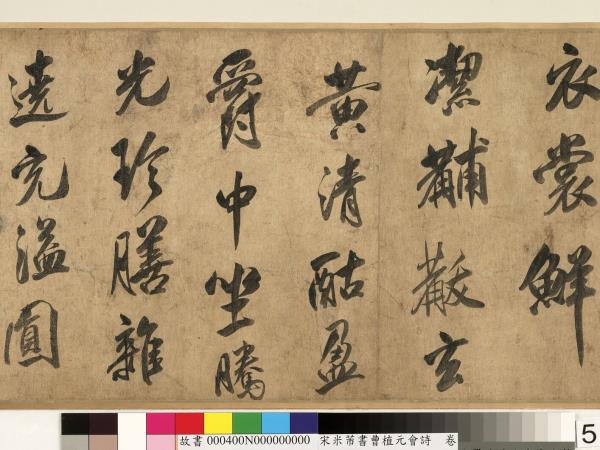 衣裳鮮
潔黼黻玄
黃清酤盈
爵中坐騰
光珍膳雜
遶充溢圓
故書 000400N000000000 宋米芾書曹植元會詩 卷
5